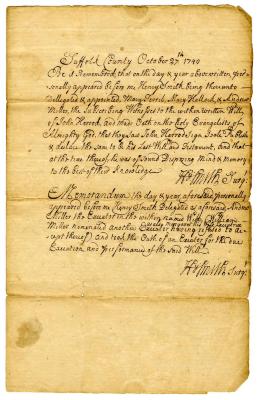 Suffolk County October 27th 1740
Be it Remembred that on the day & year above written, pers-
onally appeared before me Henry Smith being thereunto
Delegated & appointed, Mary Terrell, Mary Hallock & Andrew
Miller, the Subscribing Witnesses to the within written Will
of John Herrod, and made Oath on the Holy Evangelists of
Almighty God, that they saw John Herrod sign Seal Publish
& declare the same to be his last Will and Testament and that
at the time thereof he was of sound Disposing Mind & memory
to the best of their Knowledge
Hy Smith Surg.
Memorandum the day & year aforesaid personally
appeared before me Henry Smith Delegated as aforesaid Andrew
Miller the Executor in the within named Will
Miller nominated another Executor having refused to Ac-
cept thereof) and took the Oath of an Executor for the due
Execution and Performance of the said Will
Hy Smith Surg.